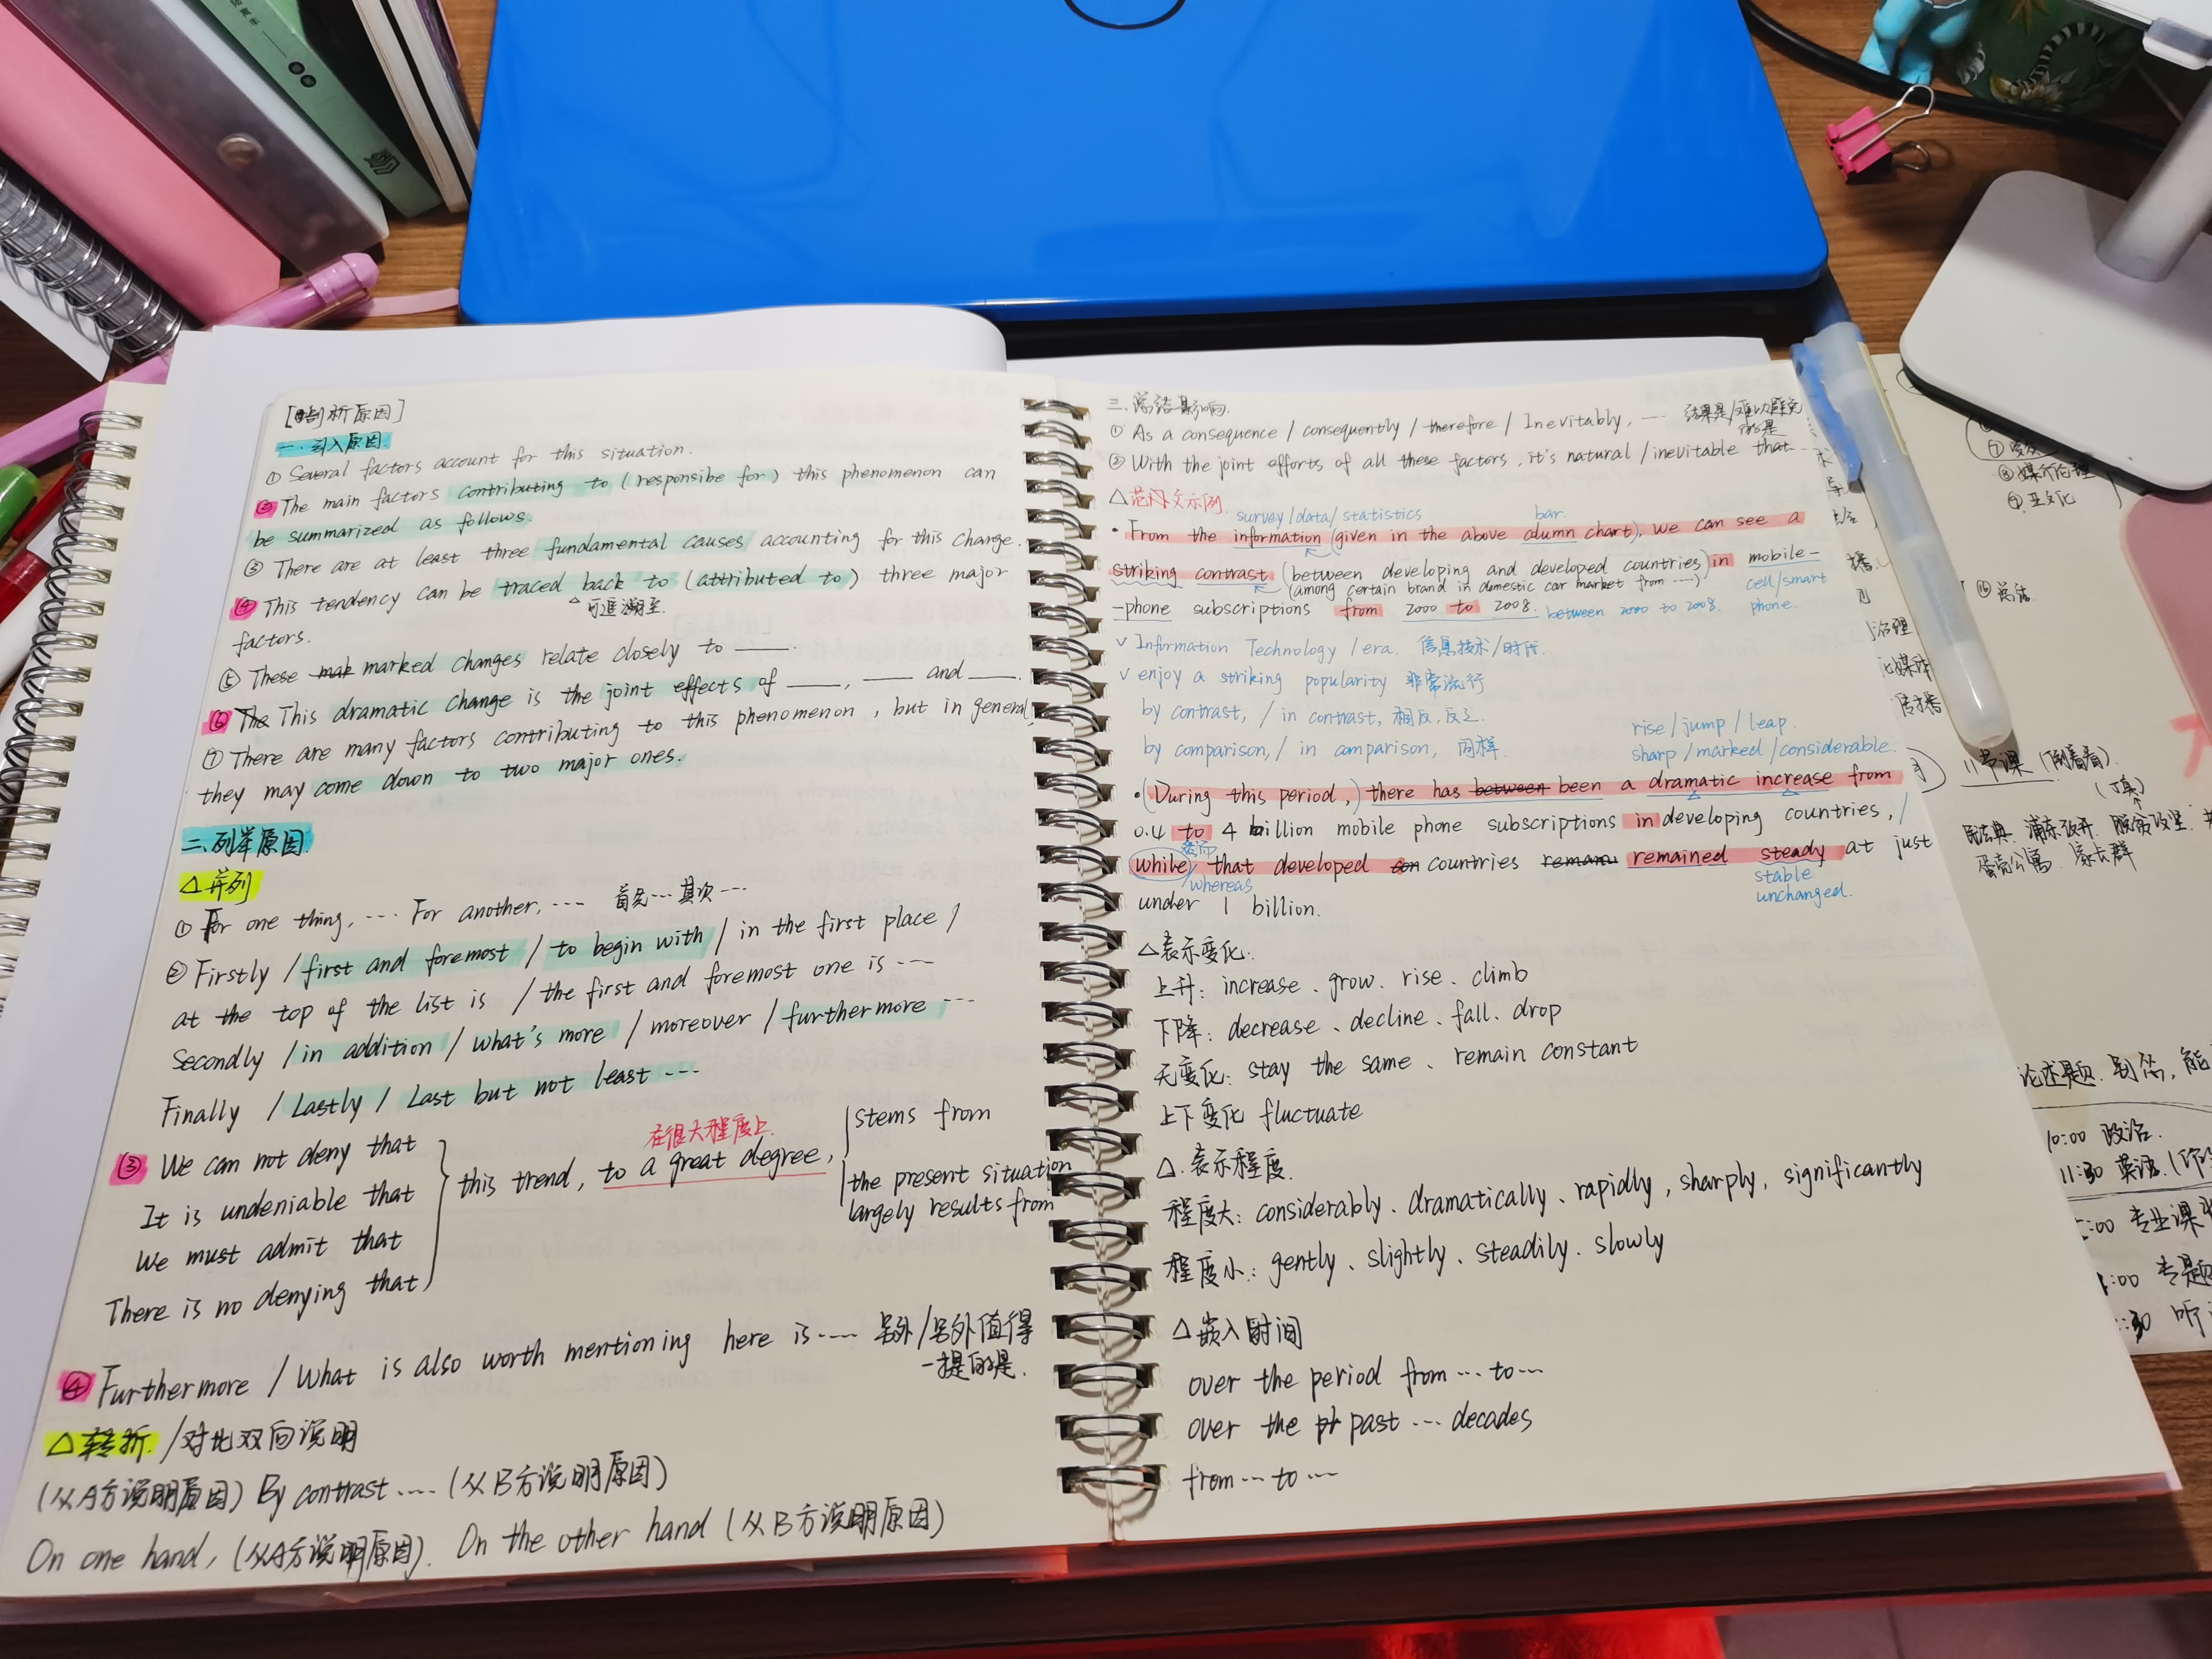 [剖析原因]
一.引入原因
① Several factors account for this situation.
② The main factors contributing to (responsibe for) this phenomenon can
be summarized as follows.
③ There are at least three fundamental causes accounting for this change.
④ This tendency can be traced back to (attributed to) three major
可追溯至
factors.
⑤ These mak marked changes relate closely to ____.
⑥ The This dramatic change is the joint effects of ____, ____ and ____.
⑦ There are many factors contributing to this phenomenon, but in general,
they may come down to two major ones.
二.列举原因
△并列
① For one thing, ···. For another, ··· 首先···其次···
② Firstly / first and foremost / to begin with / in the first place /
at the top of the list is / the first and foremost one is ···
Secondly / in addition / what's more / moreover / furthermore ···
Finally / Lastly / Last but not least ···
在很大程度上
③ We can not deny that
It is undeniable that
We must admit that
There is no denying that
this trend, to a great degree,
stems from
the present situation
largely results from
④ Furthermore / What is also worth mentioning here is ···· 另外/另外值得
一提的是.
△转折/对比双向说明
(从A方说明原因) By contrast ···· (从B方说明原因)
On one hand, (从A方说明原因). On the other hand (从B方说明原因)
三.总结影响
① As a consequence / consequently / therefore / Inevitably, ··· 结果是/难以避免
的是
② With the joint efforts of all these factors, it's natural / inevitable that ···
△范文示例
survey/data/statistics bar.
• From the information (given in the above alumn chart), we can see a
striking contrast (between developing and developed countries) in mobile-
(among certain brand in domestic car market from ····) cell/smart
-phone subscriptions from 2000 to 2008. between 2000 to 2008. phone.
v Information Technology / era. 信息技术/时代.
v enjoy a striking popularity 非常流行
by contrast, / in contrast, 相反,反之.
by comparison, / in amparison, 同样.
rise/jump/leap.
sharp/marked/considerable.
• (During this period,) there has between been a dramatic increase from
0.4 to 4 billion mobile phone subscriptions in developing countries, /
while that developed countries remained steady at just
whereas stable
under 1 billion. unchanged.
△表示变化:
上升: increase、grow. rise、climb
下降: decrease、decline、fall、drop
无变化: stay the same、remain constant
上下变化 fluctuate
△.表示程度.
程度大: considerably、dramatically、rapidly, sharply, significantly
程度小: gently、slightly、steadily. slowly
△嵌入时间
over the period from ··· to ···
over the pr past ··· decades
from ··· to ···
⑨亚文化
⑯ 总结
11节课 (倒着看)
民法典 浦东改开 脱贫攻坚
蛋壳公寓 家长群
论述题.
10:00 政治.
11:30 英语.
:00 专业课
:00 专题
:30 听